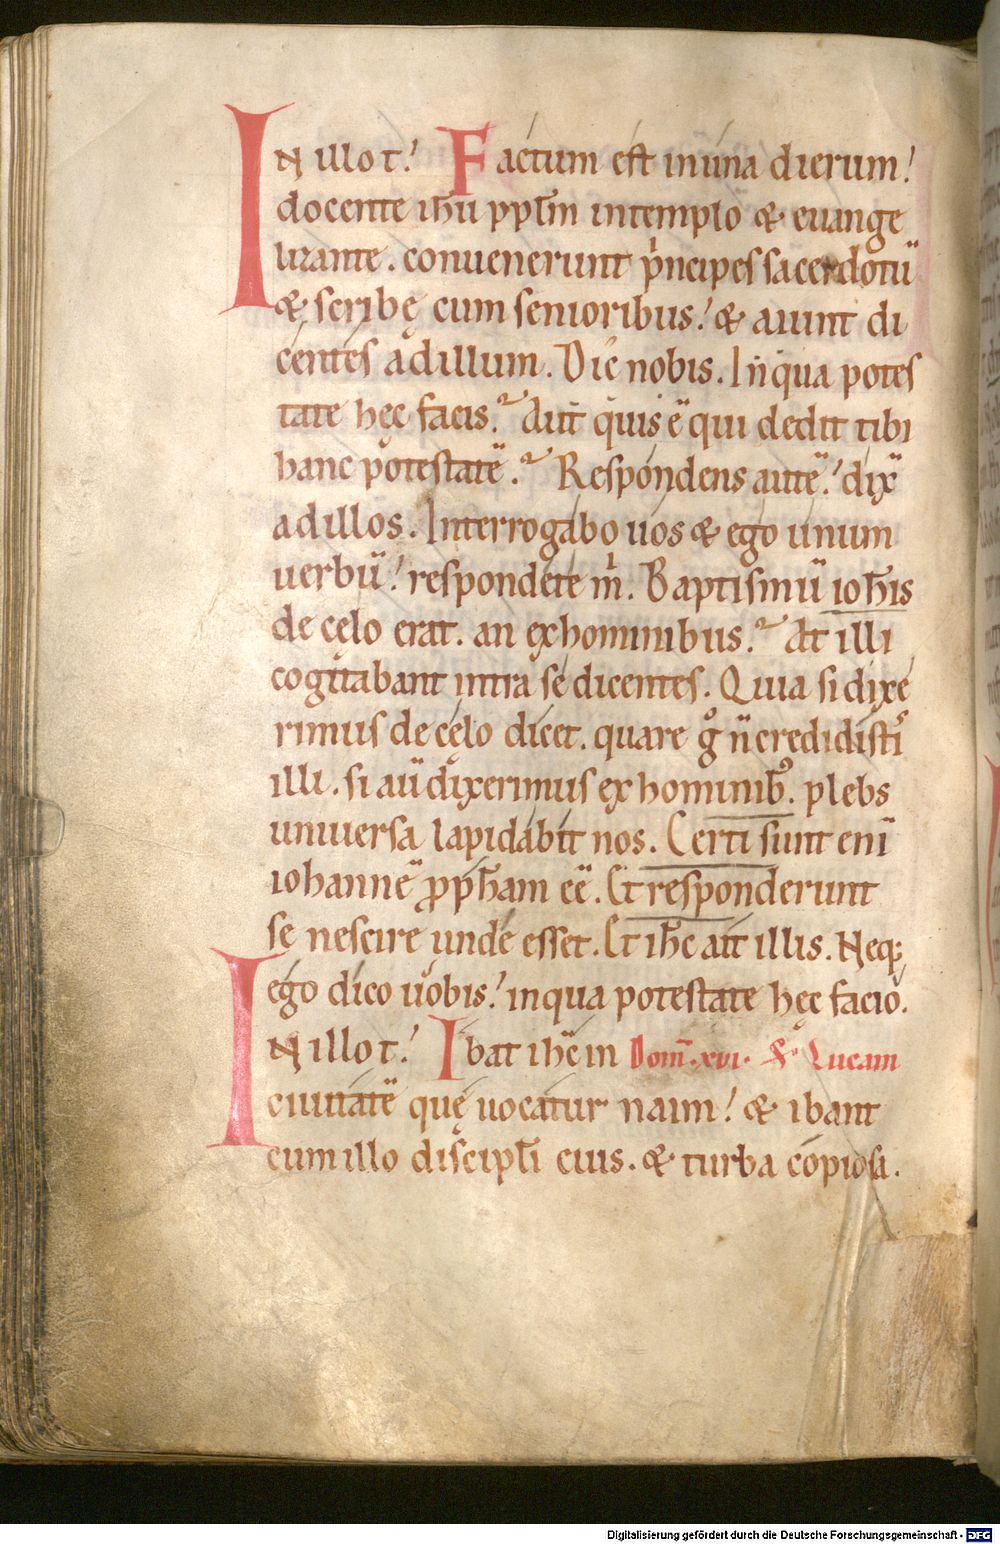 IN illo t. Factum est in una dierum.
docente ihū pplm̄ in templo & euange
lizante. conuenerunt pͥncipes sacerdotū
& scribę cum senioribus. & aiunt di
centes ad illum. Dic nobis. In qua potes
tate hęc facis? Aut quis ē qui dedit tibi
hanc potestatē? Respondens autē. dix̄
ad illos. Interrogabo uos & ego unum
uerbū. respondete mͥ. Baptismū ioh̄is
de cęlo erat. an ex hominibus? At illi
cogitabant intra se dicentes. Quia si dixe
rimus de cęlo dicet. quare gͦ n̄ credidistiˢ
illi. si aū dixerimus ex hominibꝰ. plebs
uniuersa lapidabit nos. Certi sunt enī
iohannē ꝓph̄am eē. Et responderunt
se nescire unde esset. Et ih̄c ait illis. Neq;
ego dico uobis. in qua potestate hęc facio.
IN illo t. Ibat ih̄c in Dom̄. xvi. S. Lucam
ciuitatē quę uocatur naim. & ibant
cum illo discipl̄i eius. & turba copiosa.
Digitalisierung gefördert durch die Deutsche Forschungsgemeinschaft - DFG